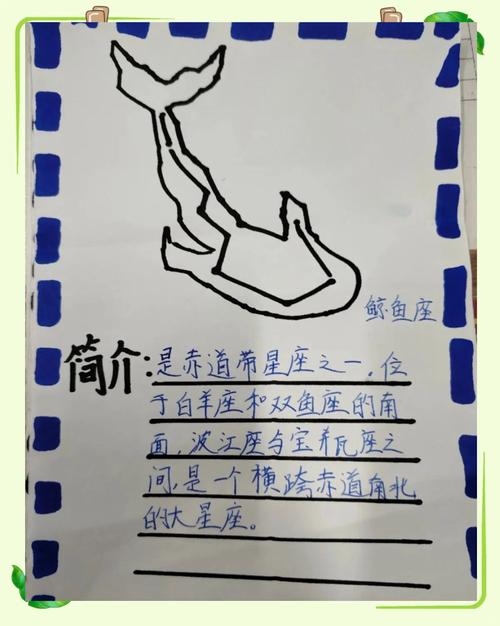 鲸鱼座
简介:是赤道带星座之一,位
于白羊座和双鱼座的南
面,波江座与宝瓶座之
间,是一个横跨赤道南北
的大星座。